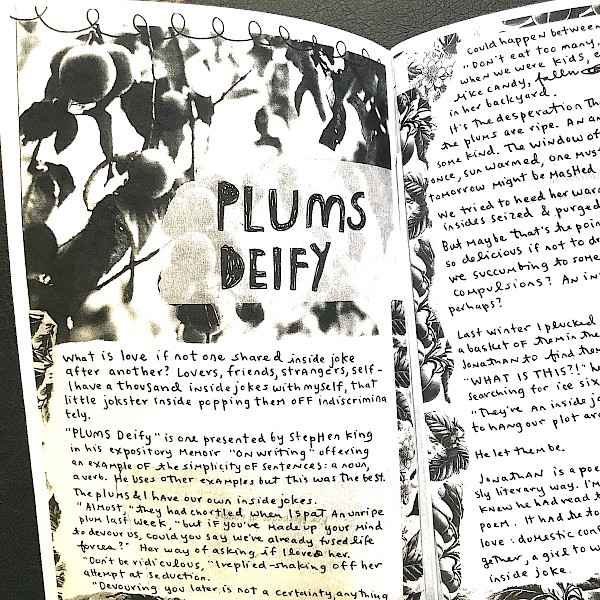 PLUMS
DEIFY
What is love if not one shared inside joke
after another? Lovers, friends, strangers, self-
I have a thousand inside jokes with myself, that
little jokster inside popping them OFF indiscrimina
tely.
"PLUMS Deify" is one presented by Stephen King
in his expository Memoir "ON Writing" offering
an example of the simplicity of sentences: a noun,
a verb. He uses other examples but this was the best.
The plums & I have our own inside jokes.
"Almost," they had chortled when I spat an unripe
plum last week, "but if you've made up your mind
to devour us, could you say we've already fused life
forces?" Her way of asking if I loved her.
"Don't be ridiculous," I replied - shaking off her
attempt at seduction.
"Devouring you later is not a certainty, anything
could happen between
"Don't eat too many.
when we were kids,
like candy, fallen
in her backyard.
It's the desperation th
the plums are ripe. An an
some kind. The window of
once, sun warmed, one must
tomorrow might be mashed
We tried to heed her war
insides seized & purged
But maybe that's the poin
so delicious if not to dr
we succumbing to some
compulsions? An in
perhaps?
Last winter I plucked
a basket of them in the
Jonathan to find them
"WHAT IS THIS?!" he
searching for ice six
"They're an inside jo
to hang our plot aro
He let them be.
Jonathan is a poe
sly literary way. I'm
knew he had read t
poem. It had to do
love: domestic con
gether, a girl to w
inside joke.